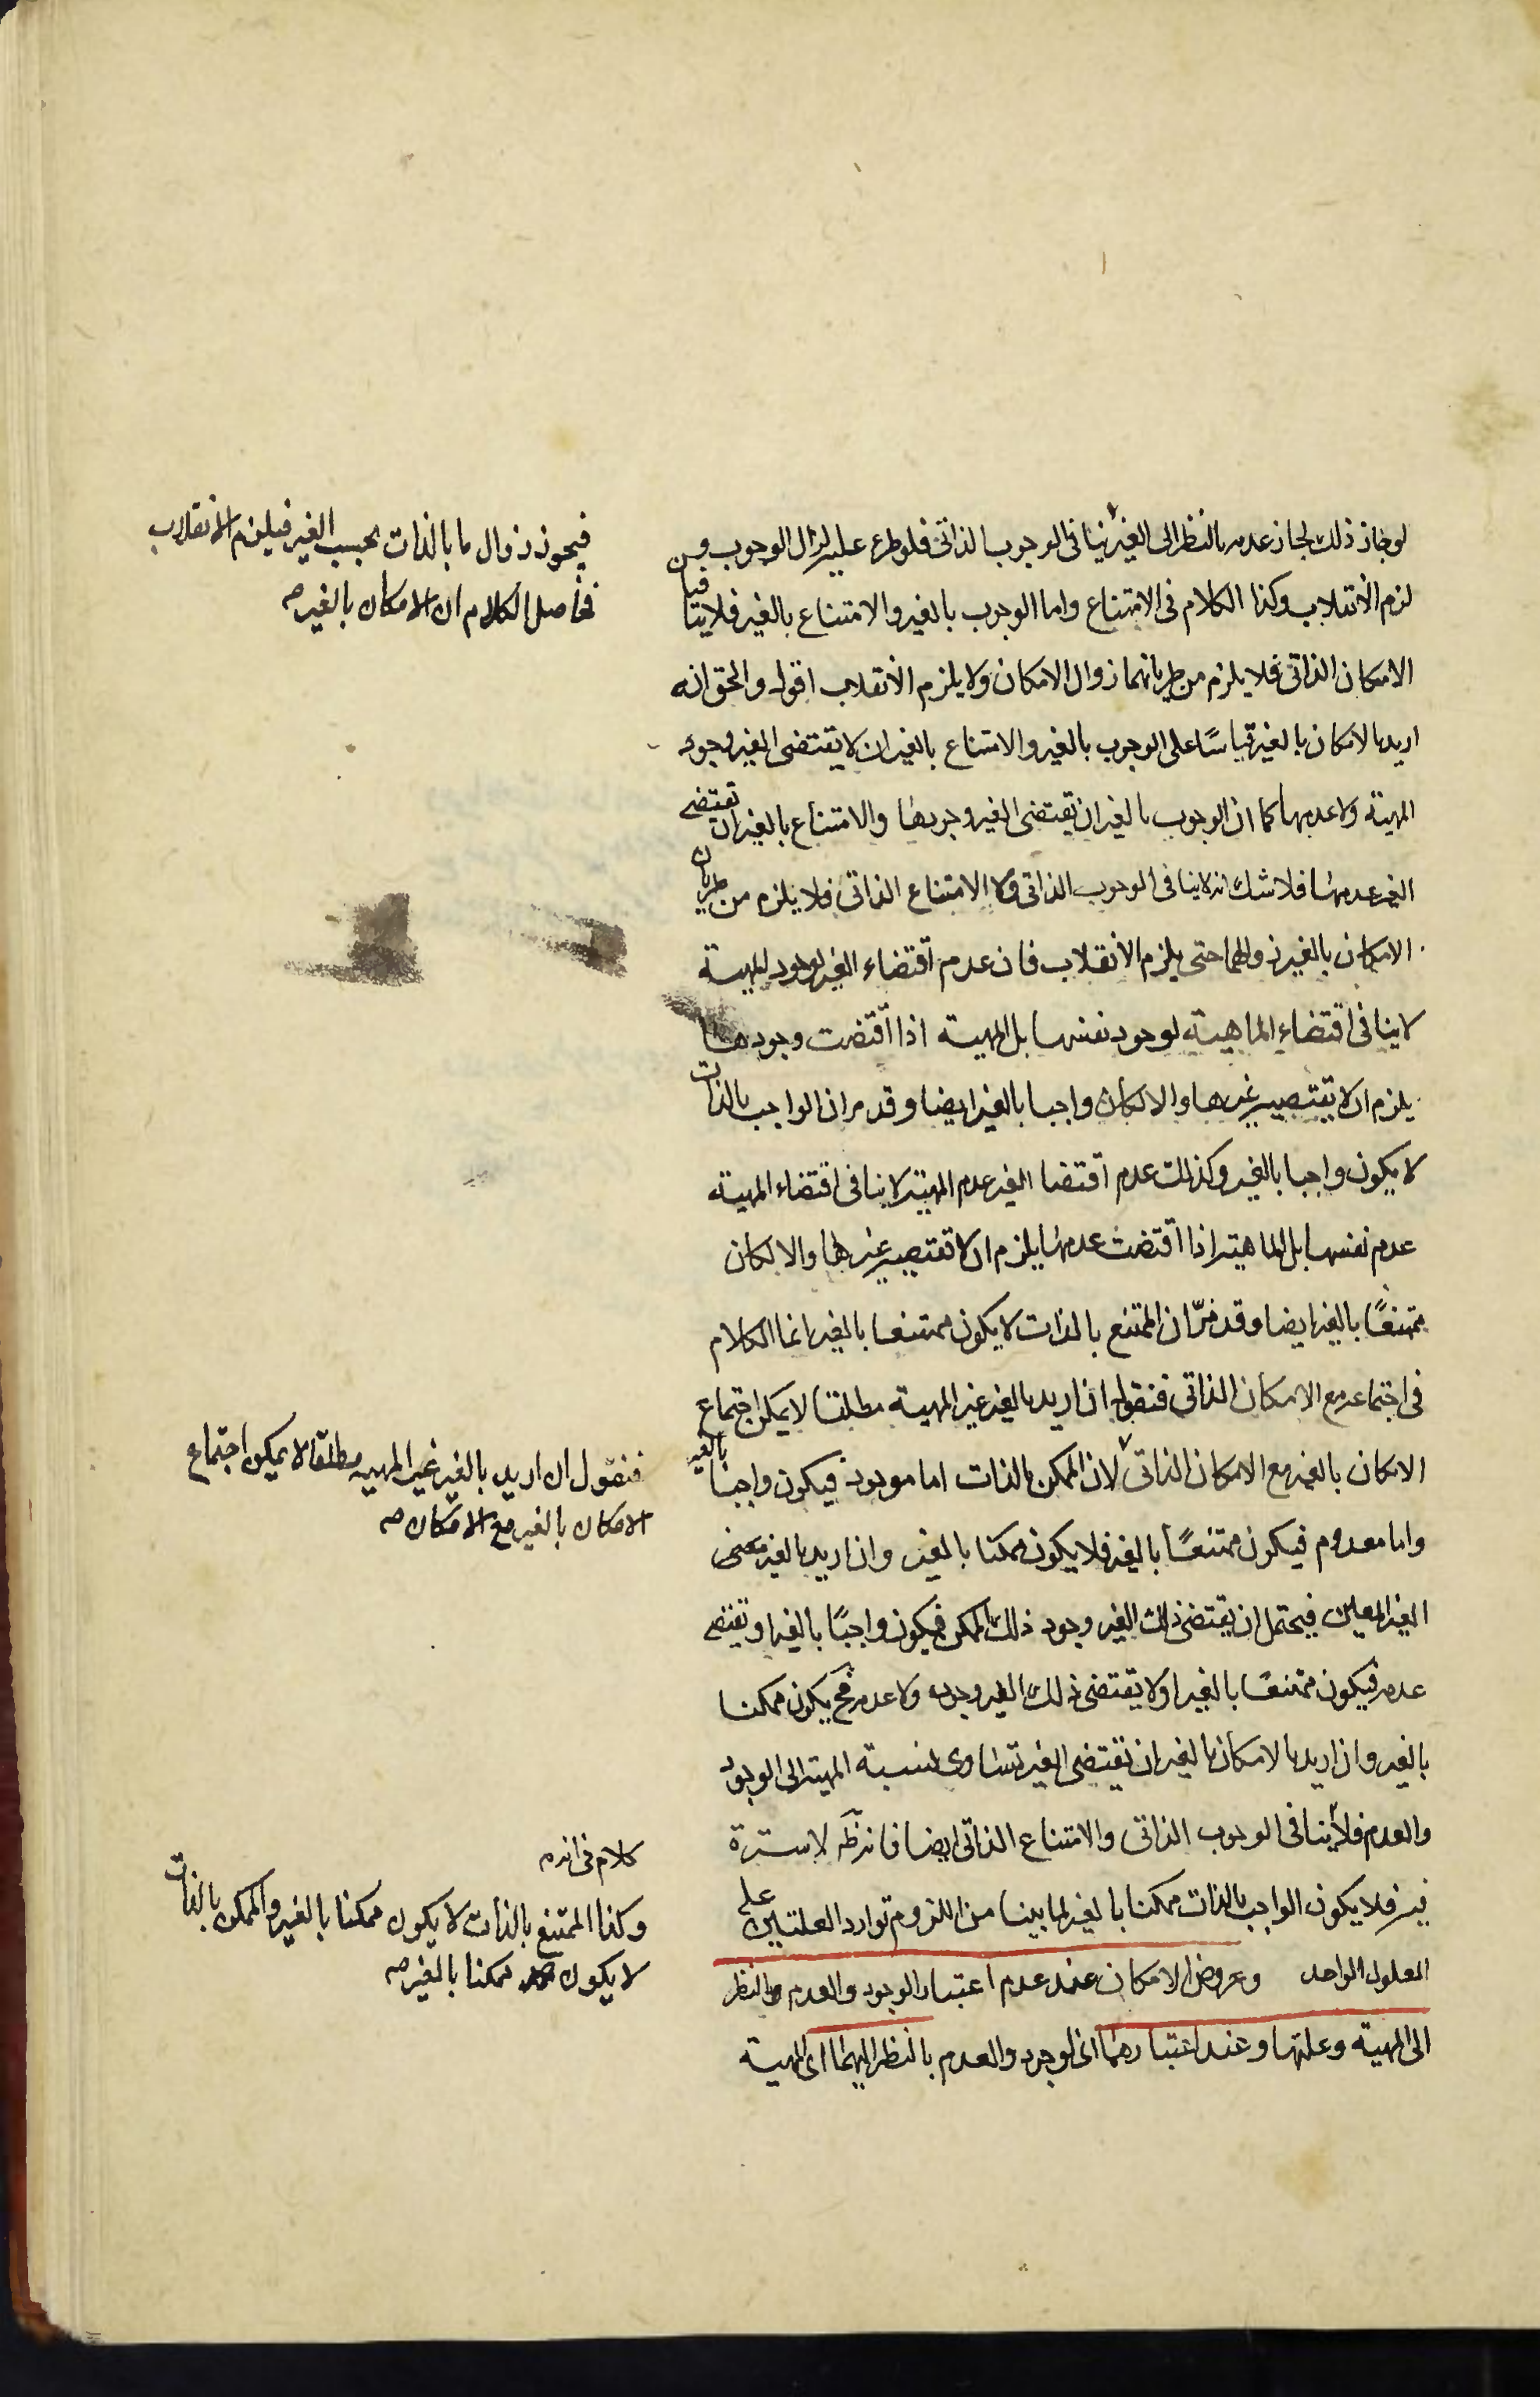 لو جاز ذلك لجاز عدمه بالنظر الى الغير ينافى الوجوب الذاتى فلو طرء عليه لزال الوجوب و من
لزم الانقلاب وكذا الكلام فى الامتناع واما الوجوب بالغير والامتناع بالغير فلا ينافيا
الامكان الذاتى فلا يلزم من طريانهما زوال الامكان ولا يلزم الانقلاب اقول والحق انه
اريد بالامكان بالغير قياسًا على الوجوب بالغير والامتناع بالغير ان لا يقتضى الغير وجود
المهية ولا عدمها كما ان الوجوب بالغير ان يقتضى الغير وجودها والامتناع بالغير ان تقتضى
الغير عدمها فلا شك انه لا ينافى الوجوب الذاتى ولا الامتناع الذاتى فلا يلزم من طريان
الامكان بالغير زوالهما حتى يلزم الانقلاب فان عدم اقتضاء الغير لوجود المهية
لا ينافى اقتضاء الماهية لوجود نفسها بل المهية اذا اقتضت وجودها
يلزم ان لا يقتضيه غيرها والا لكان واجبا بالغير ايضا وقد مر ان الواجب بالذات
لا يكون واجبا بالغير وكذلك عدم اقتضا الغير عدم المهية لا ينافى اقتضاء المهية
عدم نفسها بل الماهية اذا اقتضت عدمها يلزم ان لا تقتضيه غيرها والا لكان
ممتنعًا بالغير ايضا وقد مرّ ان الممتنع بالذات لا يكون ممتنعا بالغير انما الكلام
فى اجتماعه مع الامكان الذاتى فنقول ان اريد بالغير غير المهية مطلقا لا يمكن اجتماع
الامكان بالغير مع الامكان الذاتى لان الممكن بالذات اما موجود فيكون واجبا بالغير
واما معدوم فيكون ممتنعًا بالغير فلا يكون ممكنا بالغير وان اريد بالغير معنى
الغير المعين فيحتمل ان يقتضى ذلك الغير وجود ذلك الممكن فيكون واجبًا بالغير او تقتضى
عدمه فيكون ممتنعًا بالغير او لا يقتضى ذلك الغير وجوده ولا عدمه فح يكون ممكنا
بالغير وان اريد بالامكان بالغير ان يقتضى الغير تساوى نسبة المهية الى الوجود
والعدم فلا ينافى الوجوب الذاتى والامتناع الذاتى ايضا فانه لا سترة
فيه فلا يكون الواجب بالذات ممكنا بالغير لما بينا من اللزوم توارد العلتين على
المعلول الواحد وعروض الامكان عند عدم اعتبار الوجود والعدم والنظر
الى المهية وعلتها وعند اعتبارهما اى الوجود والعدم بالنظر اليهما اى المهية
فيجوز زوال ما بالذات بحسب الغير فيلزم الانقلاب
فحاصل الكلام ان الامكان بالغير صه
فنقول ان اريد بالغير غير المهية مطلقا لا يمكن اجتماع
الامكان بالغير مع الامكان صه
كلام فى انه
وكذا الممتنع بالذات لا يكون ممكنا بالغير والممكن بالذات
لا يكون ممكنا بالغير صه